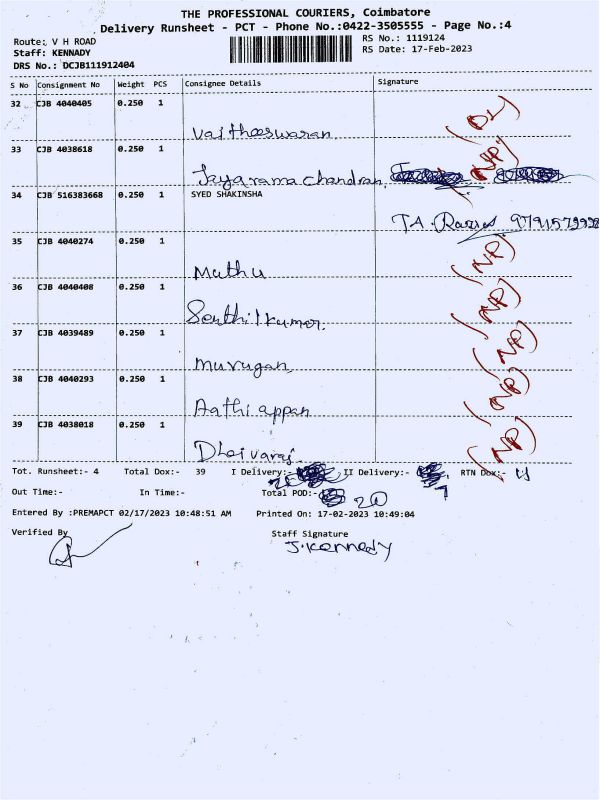 THE PROFESSIONAL COURIERS, Coimbatore
Delivery Runsheet - PCT - Phone No.:0422-3505555 - Page No.:4
Route: V H ROAD
RS No.: 1119124
Staff: KENNADY
RS Date: 17-Feb-2023
DRS No.: DCJB111912404
S No Consignment No Weight PCS Consignee Details Signature
32 CJB 4040405 0.250 1
Vaitheeswaran (DL)
33 CJB 4038618 0.250 1
Jayarama chandran (NP)
34 CJB 516383668 0.250 1 SYED SHAKINSHA
35 CJB 4040274 0.250 1
Muthu (NP)
36 CJB 4040408 0.250 1
Senthilkumar. (NP)
37 CJB 4039489 0.250 1
murugan (NP)
38 CJB 4040293 0.250 1
Aathiappan (NP)
39 CJB 4038018 0.250 1
Dheivaraj. (NP)
Tot. Runsheet:- 4 Total Dox:- 39 I Delivery:- II Delivery:- RTN Dox:-
Out Time:- In Time:- Total POD:- 20
Entered By :PREMAPCT 02/17/2023 10:48:51 AM Printed On: 17-02-2023 10:49:04
Verified By Staff Signature
J.Kennedy